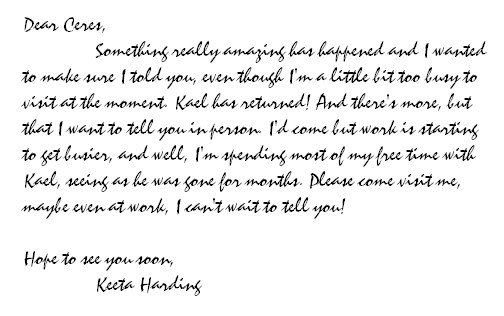 Dear Ceres,
Something really amazing has happened and I wanted
to make sure I told you, even though I'm a little bit too busy to
visit at the moment. Kael has returned! And there's more, but
that I want to tell you in person. I'd come but work is starting
to get busier, and well, I'm spending most of my free time with
Kael, seeing as he was gone for months. Please come visit me,
maybe even at work, I can't wait to tell you!
Hope to see you soon,
Keeta Harding